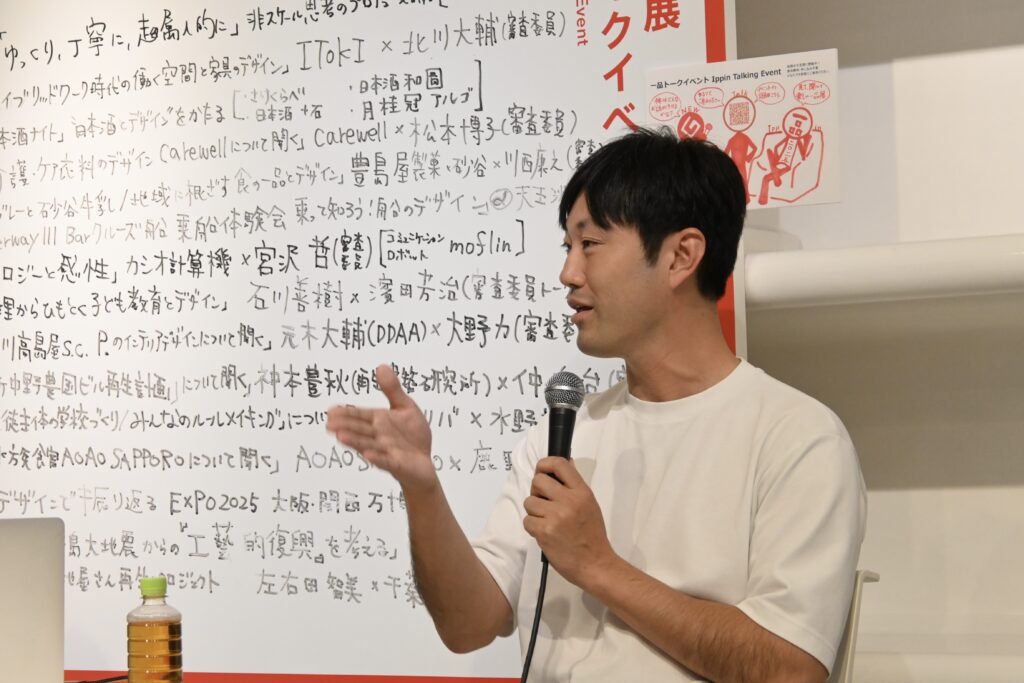 ゆっくり、丁寧に、超属人的に」非スケール思考の
イブリッドワーク時代の働く空間と家具のデザイン」 ITOKI × 北川大輔(審査委員)
本酒ナイト」日本酒とデザインをかたる [・さけくらべ ・日本酒和圖
・日本酒 十石 ・月桂冠 アルゴ]
護・ケア衣料のデザイン Carewellについて聞く Carewell × 松本博子(審査委員)
レーと石砂谷牛乳/地域に根ざす食の一品とデザイン」 豊島屋製菓・砂谷 × 川西康之(審査
erway III Barクルーズ船 乗船体験会 乗って知ろう!船のデザイン」@天王洲
ロジーと感性」カシオ計算機 × 宮沢 哲(審査委員) [コミュニケーションロボット moflin]
理からひもとく子ども教育とデザイン」 石川善樹 × 濱田芳治(審査委員
川高島屋S.C. P.のインテリアデザインについて聞く」 元木大輔(DDAA) × 大野力(審査委
中野農園ビル再生計画」について聞く」 神本豊秋(再生建築研究所) × 仲
徒主体の学校づくり/みんなのルールメイキング」につい × 水野
AOAO SAPPOROについて聞く」 AOAO ×
デザインで振り返る EXPO2025 大阪・関西万博
島大地震からの『工藝的復興』を考える」
地屋さん再 プロジェクト 左右田智美 × 千葉
展
クイベ
Event
一品トークイベント Ippin Talking Event